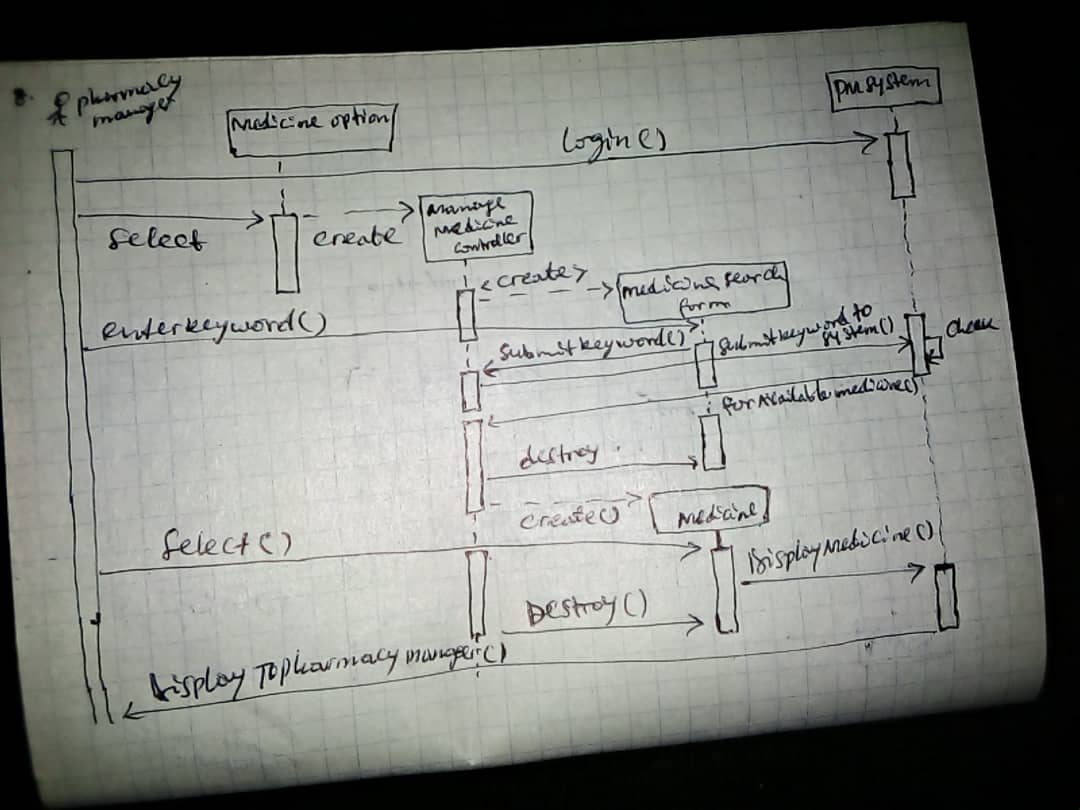 8. pharmacy
manager
Medicine option
PM System
Login()
Select
create
Manage
Medicine
Controller
<create>
medicine search
form
enterkeyword()
Submitkeyword()
Submitkeyword to
System()
Check
For Available medicine()
destroy
create()
Medicine
Select()
Display Medicine()
Destroy()
Display To Pharmacy manger()